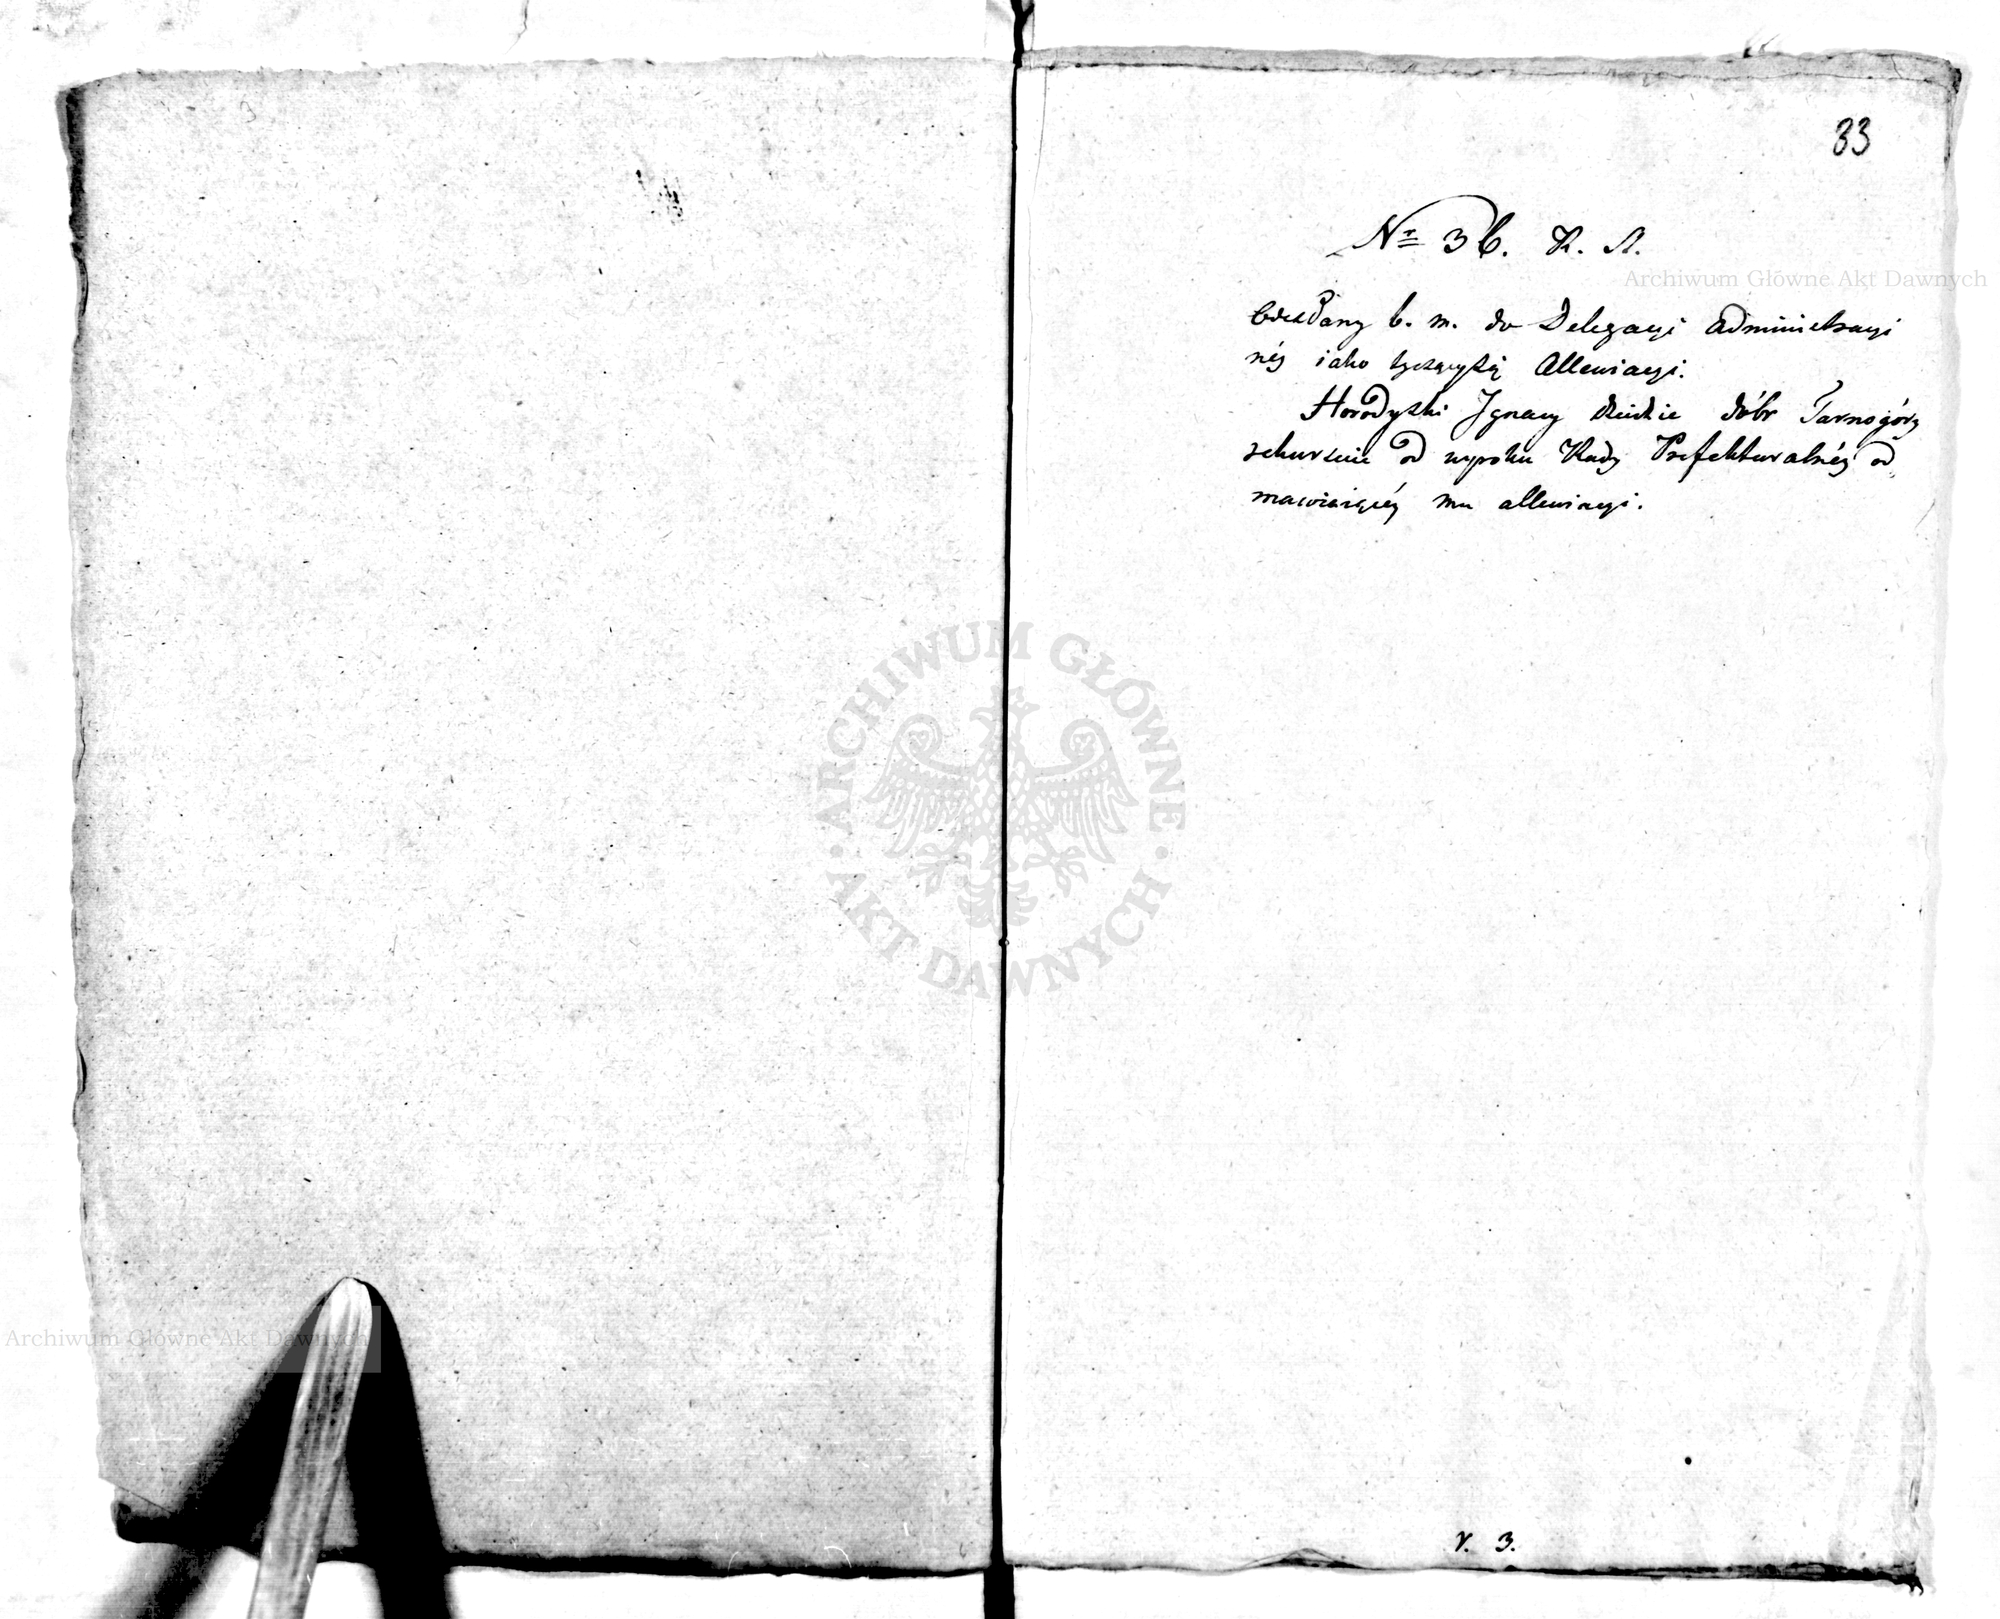 33
Nr 36. R. S.
Odesłany b. m. do Delegacyi Administracyi
néy iako tyczącysię Allewiacyi.
Horodyski Ignacy dziedzic dóbr Tarnogóry
rekursuie od wyroku Rady Prefekturalnéy od
mawiaiącéy mu allewiacyi.
V. 3.
Archiwum Główne Akt Dawnych
ARCHIWUM GŁÓWNE AKT DAWNYCH
Archiwum Główne Akt Dawnych